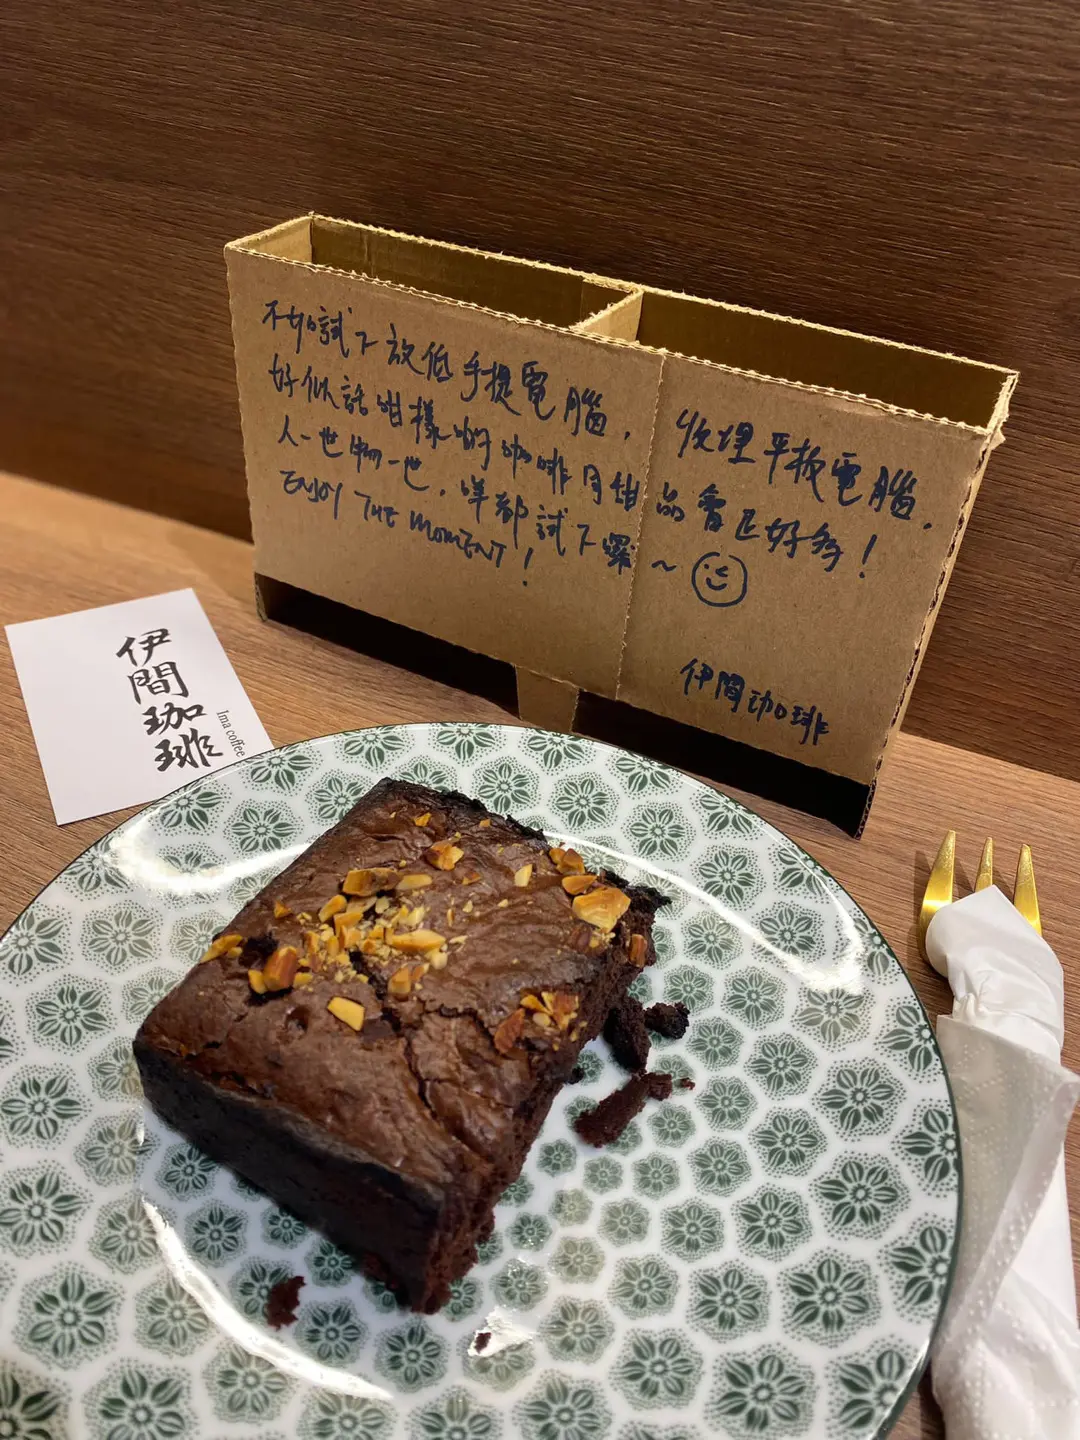 不如試下放低手提電腦, 收埋平板電腦,
好似話咁樣啲咖啡同甜品會正好多!
人一世物一世, 咩都試下㗎~
ENJOY THE MOMENT!
伊間珈琲
伊間珈琲
Ima coffee